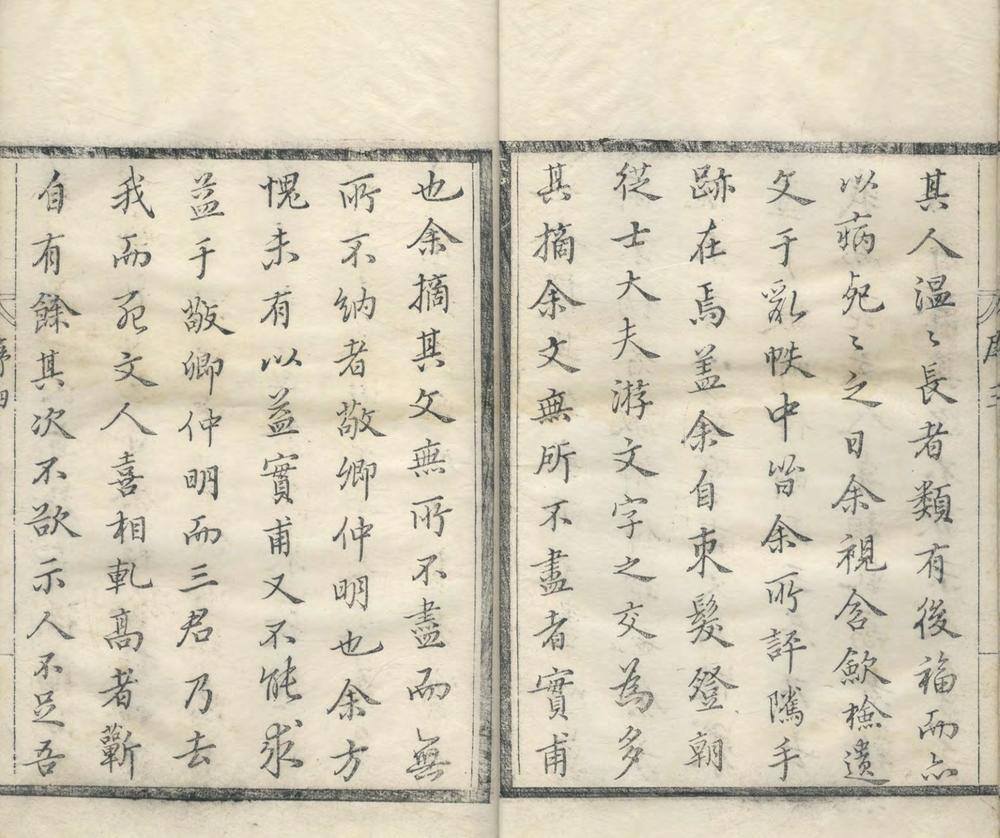 其人温〻長者類有後福而亦
以病死〻之日余視含歛檢遺
文于亂帙中皆余所評隲手
跡在焉盖余自束髮登朝
從士大夫游文字之交為多
其摘余文無所不盡者實甫
也余摘其文無所不盡而無
所不納者敬卿仲明也余方
愧未有以益實甫又不能求
益于敬卿仲明而三君乃去
我而死文人喜相軋高者蘄
自有餘其次不欲示人不足吾
序四